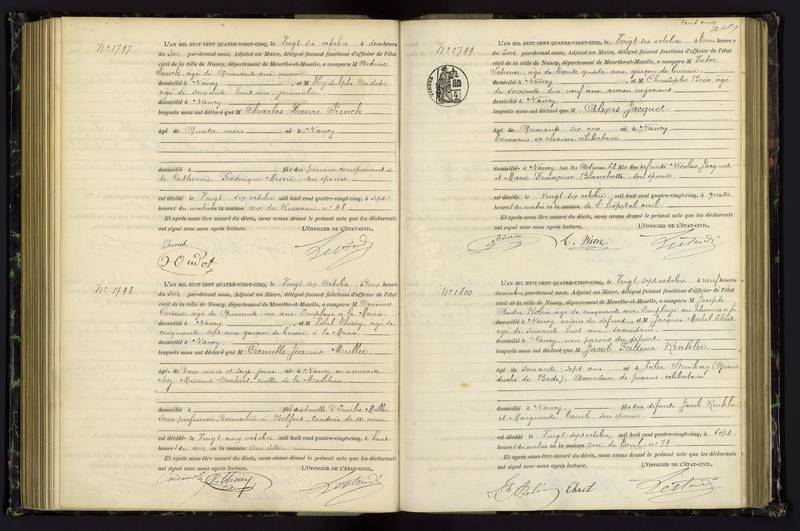 N° 1797
L'AN MIL HUIT CENT QUATRE-VINGT-CINQ, le Vingt six octobre à deux heures
du Soir par-devant nous, Adjoint au Maire, délégué faisant fonctions d'officier de l'état
civil de la ville de Nancy, département de Meurthe-et-Moselle, a comparu M
âgé de Quarante
domicilié à Nancy et M Oudot
âgé de soixante huit ans, journalier
domicilié à Nancy
lesquels nous ont déclaré que M Charles Henri
âgé de Quatre mois né à Nancy
domicilié à fils du premier comparant et
de Catherine Frédérique son épouse
est décédé le Vingt six octobre mil huit cent quatre-vingt-cinq, à sept
heures du matin en la maison rue du Ruisseau n° 48
Et après nous être assuré du décès, nous avons dressé le présent acte que les déclarants
ont signé avec nous après lecture. L'OFFICIER DE L'ÉTAT-CIVIL,
Oudot
N° 1798
L'AN MIL HUIT CENT QUATRE-VINGT-CINQ, le Vingt six Octobre à Deux heures
du Soir par-devant nous, Adjoint au Maire, délégué faisant fonctions d'officier de l'état
civil de la ville de Nancy, département de Meurthe-et-Moselle, a comparu M
âgé de Quarante un ans Employé à la Mairie
domicilié à Nancy et M Vital Thiery, âgé de
cinquante sept ans garçon de bureau à la Mairie
domicilié à Nancy
lesquels nous ont déclaré que M Camille Jeanne Muller
âgé de Deux mois et seize jours né à Nancy en nourrice
chez Madame ruelle de la Madeleine
domicilié à fille naturelle d'Emilie Muller
Sans profession domiciliée à Belfort
est décédé le Vingt cinq octobre mil huit cent quatre-vingt-cinq, à huit
heures du soir en la maison
Et après nous être assuré du décès, nous avons dressé le présent acte que les déclarants
ont signé avec nous après lecture. L'OFFICIER DE L'ÉTAT-CIVIL,
Thiery
N° 1799
L'AN MIL HUIT CENT QUATRE-VINGT-CINQ, le Vingt six octobre à heures
du Soir par-devant nous, Adjoint au Maire, délégué faisant fonctions d'officier de l'état
civil de la ville de Nancy, département de Meurthe-et-Moselle, a comparu M Victor
âgé de trente quatre ans, garçon de bureau
domicilié à Nancy et M Christophe Bion, âgé
de soixante dix neuf ans ancien négociant
domicilié à Nancy
lesquels nous ont déclaré que M Alexis Jacquot
âgé de Quarante six ans né à Nancy
en chaises célibataire
domicilié à Nancy, rue fils des défunts Nicolas Jacquot
et Marie Françoise Blanchette son épouse
est décédé le Vingt six octobre mil huit cent quatre-vingt-cinq, à quatre
heures du matin en la maison de l'hôpital civil
Et après nous être assuré du décès, nous avons dressé le présent acte que les déclarants
ont signé avec nous après lecture. L'OFFICIER DE L'ÉTAT-CIVIL,
C. Bion
N° 1800
L'AN MIL HUIT CENT QUATRE-VINGT-CINQ, le Vingt sept octobre à neuf heures
du matin par-devant nous, Adjoint au Maire, délégué faisant fonctions d'officier de l'état
civil de la ville de Nancy, département de Meurthe-et-Moselle, a comparu M Joseph
Robin âgé de cinquante ans Employé au chemin de fer
domicilié à Nancy voisin du défunt et M Jacques Michel Ehret
âgé de soixante huit ans
domicilié à Nancy non parent du défunt
lesquels nous ont déclaré que M Jacob Frédéric Kinkler
âgé de Soixante sept ans né à (Grand
duché de Bade), Accordeur de pianos célibataire
domicilié à Nancy fils des défunts Jacob Kinkler
et Marguerite son épouse
est décédé le Vingt sept octobre mil huit cent quatre-vingt-cinq, à sept
heures du matin en la maison rue de Toul n° 79
Et après nous être assuré du décès, nous avons dressé le présent acte que les déclarants
ont signé avec nous après lecture. L'OFFICIER DE L'ÉTAT-CIVIL,
Robin Ehret